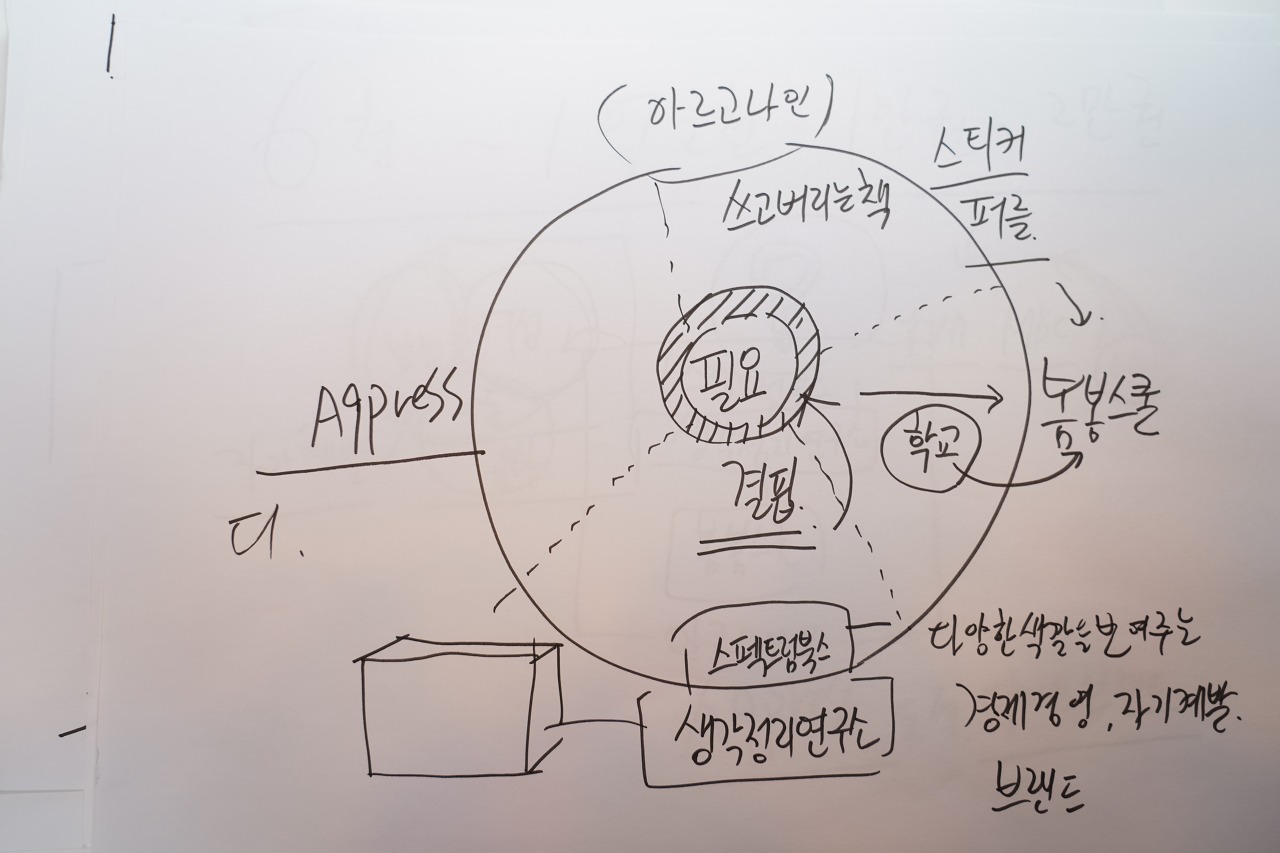 (아르고나인)
스티커
퍼즐.
쓰고버리는책
필요
Agpress
학교
결핍.
디.
스펙트럼북스
다양한색깔을보여주는
생각정리연구소
경제경영, 자기계발.
브랜드